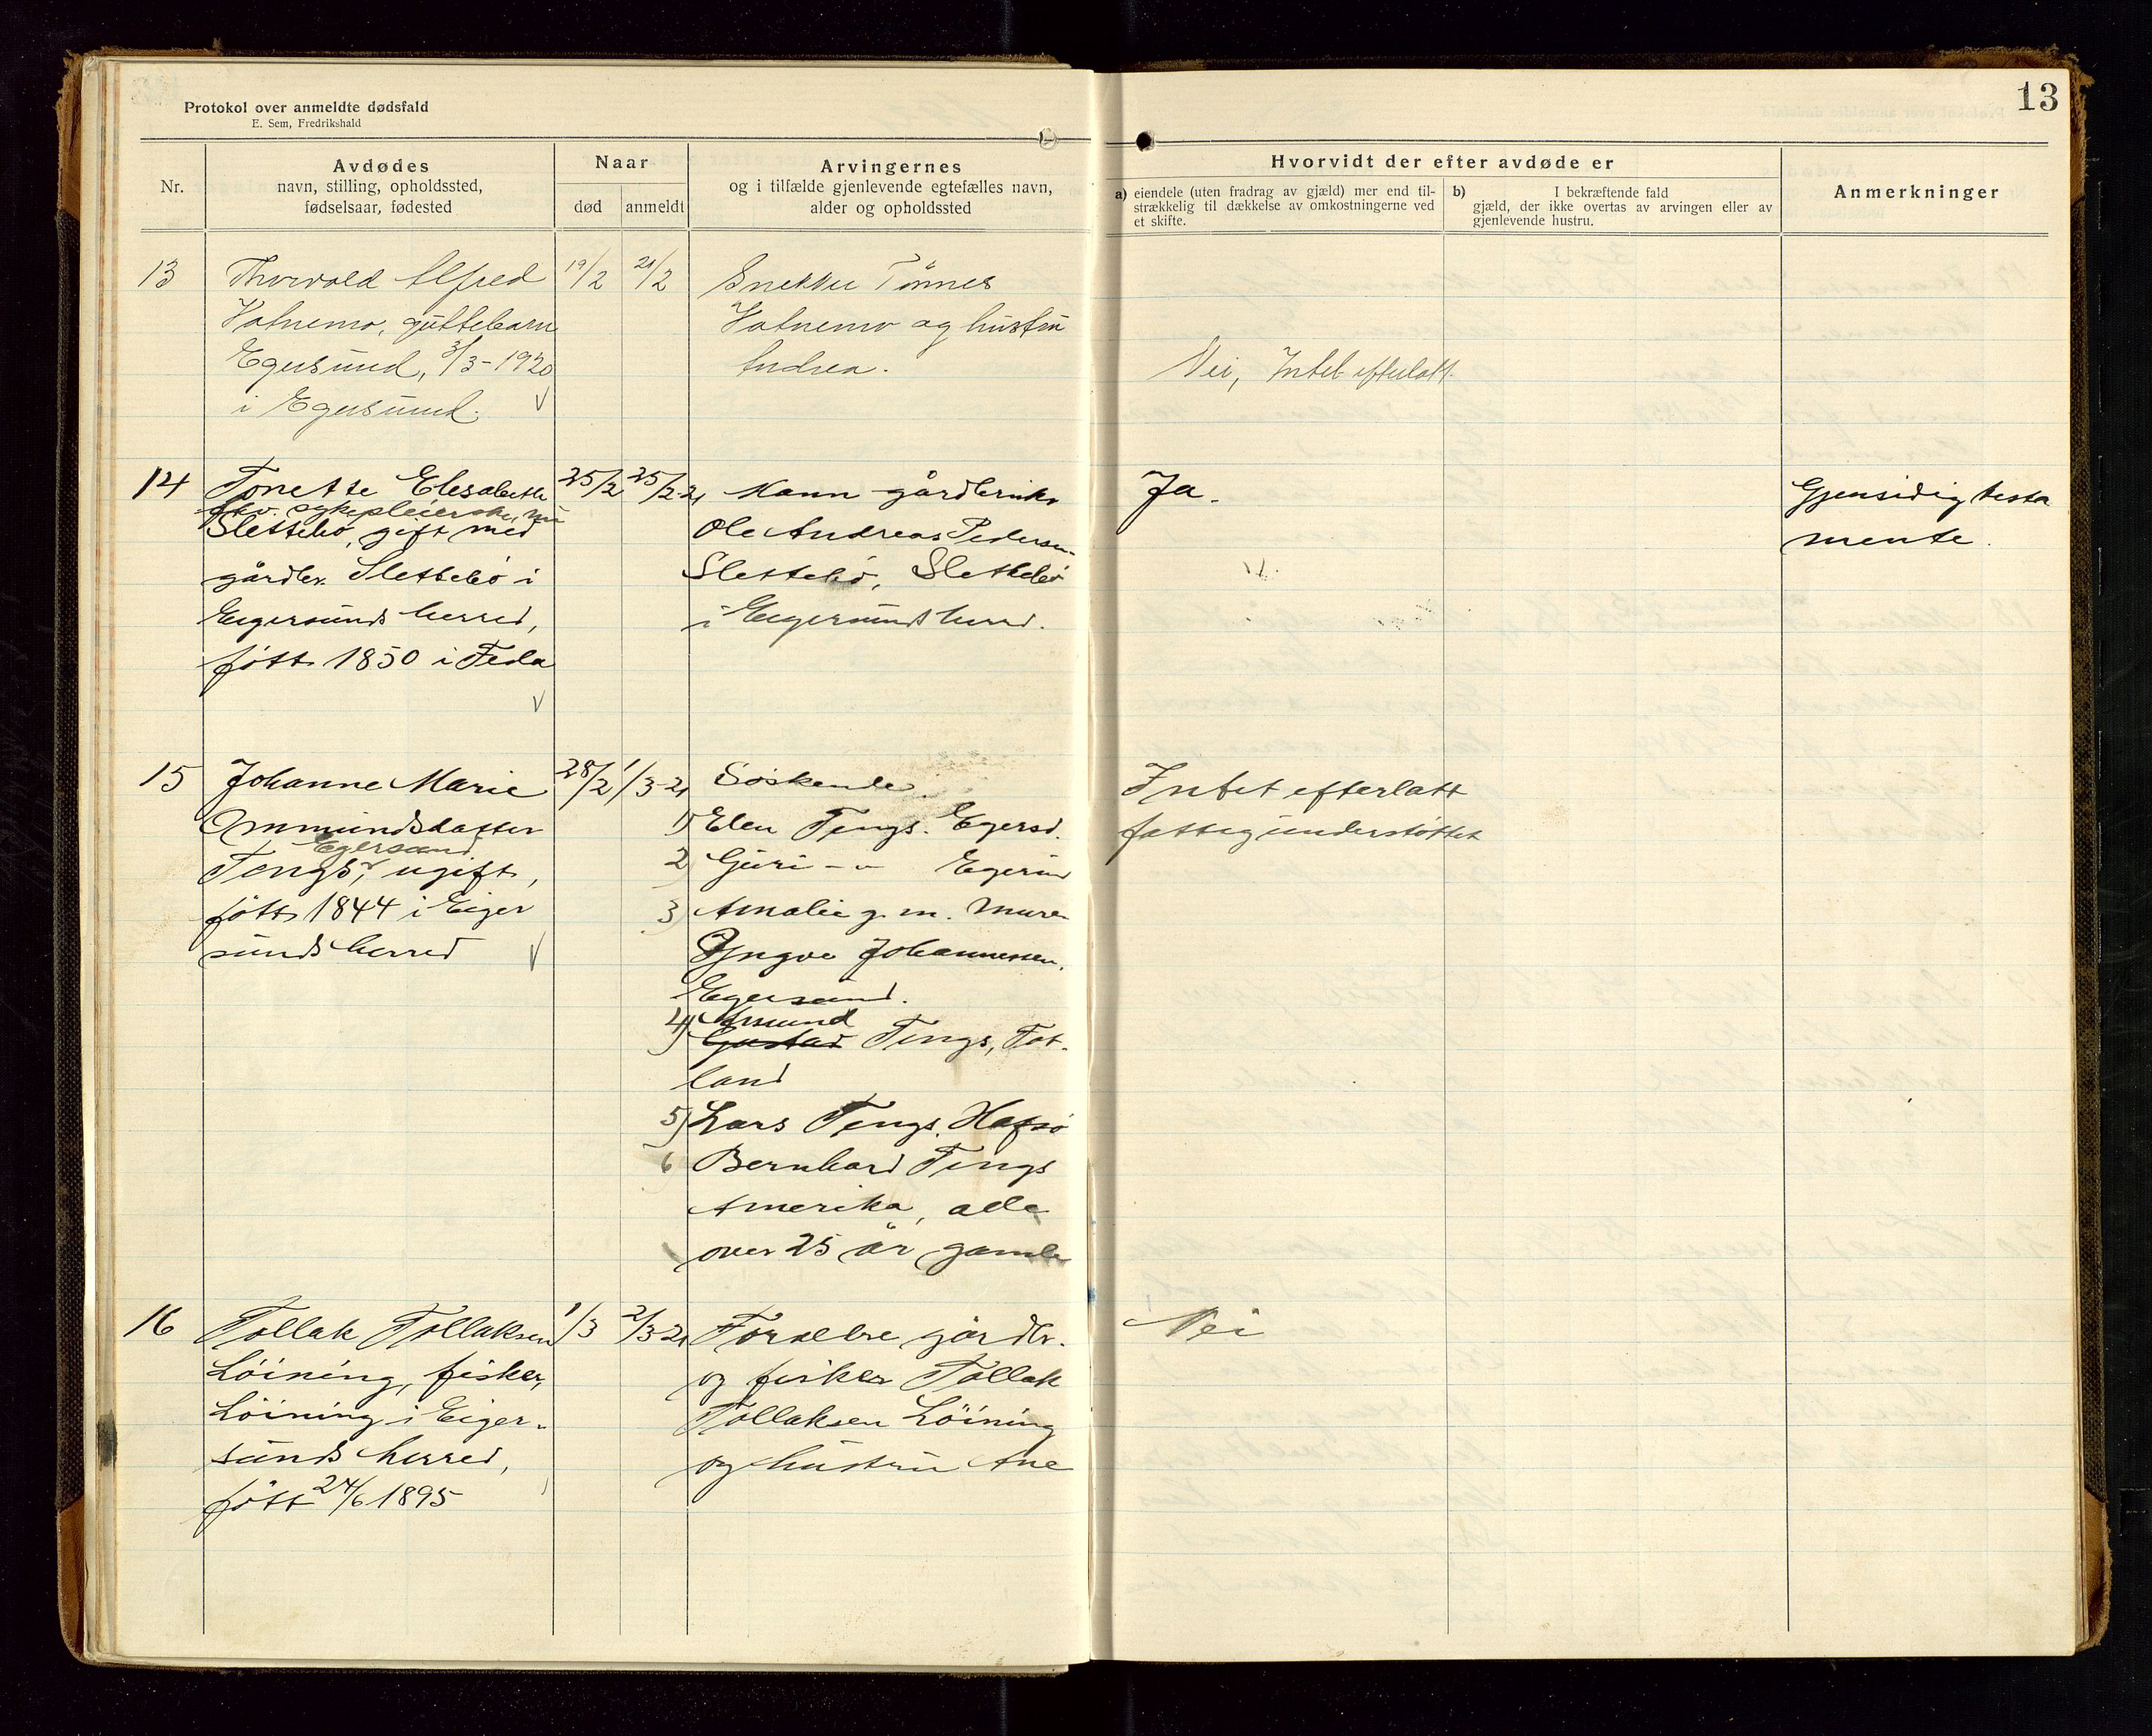 Protokol over anmeldte dødsfald
E. Sem, Fredrikshald
13
Nr.
Avdødes
navn, stilling, opholdssted,
fødselsaar, fødested
Naar
død
anmeldt
Arvingernes
og i tilfælde gjenlevende egtefælles navn,
alder og opholdssted
Hvorvidt der efter avdøde er
a) eiendele (uten fradrag av gjæld) mer end til-
strækkelig til dækkelse av omkostningerne ved
et skifte.
b) I bekræftende fald
gjæld, der ikke overtas av arvingen eller av
gjenlevende hustru.
Anmerkninger
13
Thorvald Alfred
Hatnemo, guttebarn
Egersund, 3/3-1920
i Egersund.
19/2
21/2
Snekker Tönnes
Hatnemo og hustru
Andrea.
Nei, Intet efterlatt.
14
Tonette Elisabeth
fhv. sykepleierske, nu
Slettebö, gift med
gårdbr. Slettebö i
Eigersunds herred,
fött 1850 i Feda
25/2
25/2-21
Mann gårdbruker
Ole Andreas Pedersen
Slettebö, Slettebö
i Eigersunds herred.
Ja.
Gjensidig testa
mente.
15
Johanne Marie
Ommundsdatter
Egersund
Tengs, ugift,
fött 1844 i Eiger
sunds herred
28/2
1/3-21
Söskende
1) Elen Tengs. Egersd.
2) Guri -"- Egersund
3) Amalie g. m. Murer
Yngve Johannessen,
Egersund.
4) Åmund
Gustav Tengs, Fot-
land
5) Lars Tengs, Hafsö
6) Bernhard Tengs
Amerika, alle
over 25 år gamle
Intet efterlatt
fattigunderstöttet
16
Tollak Tollaksen
Löining, fisker,
Löining i Eiger-
sunds herred,
fött 24/6 1895
1/3
2/3-21
Forældre gårdbr.
og fisker Tollak
Tollaksen Löining
og hustru Ane
Nei